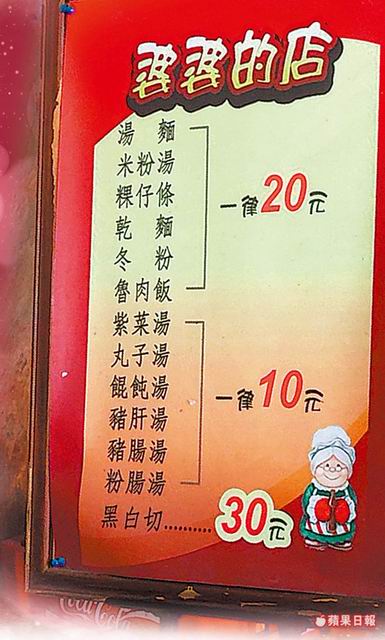 婆婆的店
湯 麵
米粉湯
粿仔條
乾 麵
冬 粉
魯肉飯
一律20元
紫菜湯
丸子湯
餛飩湯
豬肝湯
豬腸湯
粉腸湯
一律10元
黑白切.........30元
Coca-Cola
蘋果日報